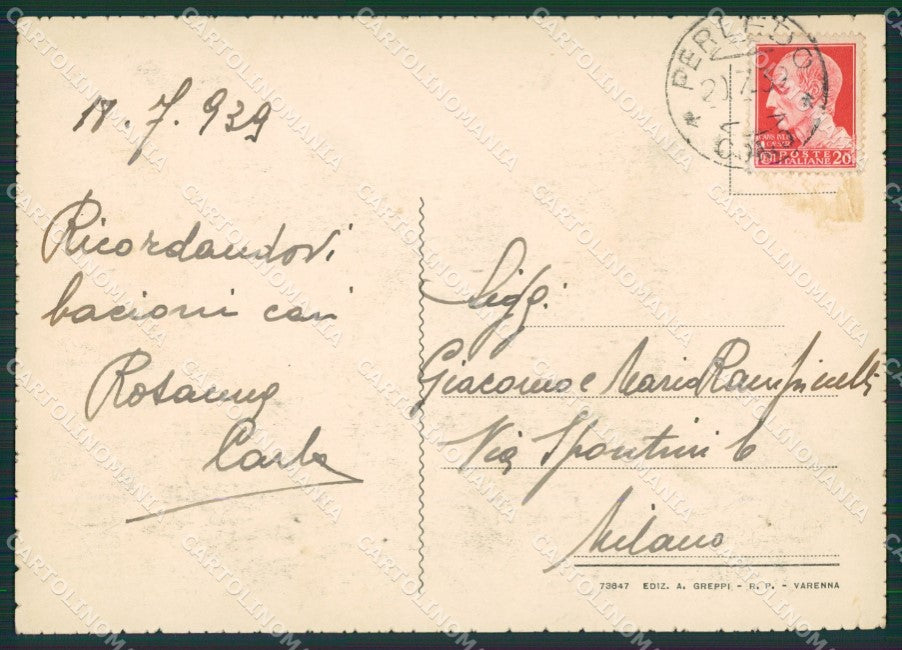 17.7.939
Ricordandovi
bacioni cari
Rosanna
Carla
PERLEDO
POSTE
ITALIANE 20
Sigg.
Giacomo e Maria Rampinelli
Via Spontini 6
Milano
73647 EDIZ. A. GREPPI - R. P. - VARENNA
CARTOLINOMANIA